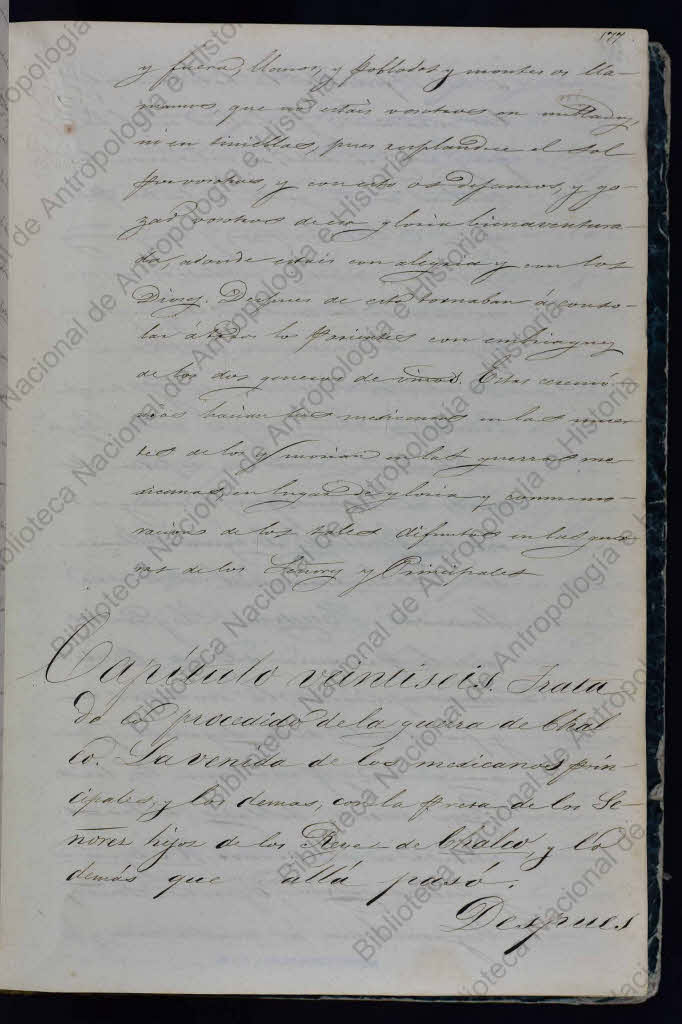 177
y fuera, llanos, y poblados y montes os lla-
mamos, que no estais vosotros en
ni en tinieblas, pues resplandece el sol
por vosotros, y con esto os dejamos, y go-
zad vosotros de esa gloria bienaventura-
da, adonde estais con alegria y con los
Dioses. Despues de esto tornaban á conso-
lar á todos lo parientes con embriaguez
de los dos generos de vinos. Estas ceremo-
nias hacian los mexicanos en las muer-
tes de los q/ morian en las guerras me-
xicanas, en lugar de gloria y conmemo-
racion de los tales difuntos en las guer-
ras de los Señores y Principales
Capítulo veintiseis. Trata
do lo procedido de la guerra de Chal
co. La venida de los mexicanos prin-
cipales, y los demas, con la presa de los Se-
ñores hijos de los Reyes de Chalco, y lo
demás que allá pasó.
Despues
Biblioteca Nacional de Antropología e Historia